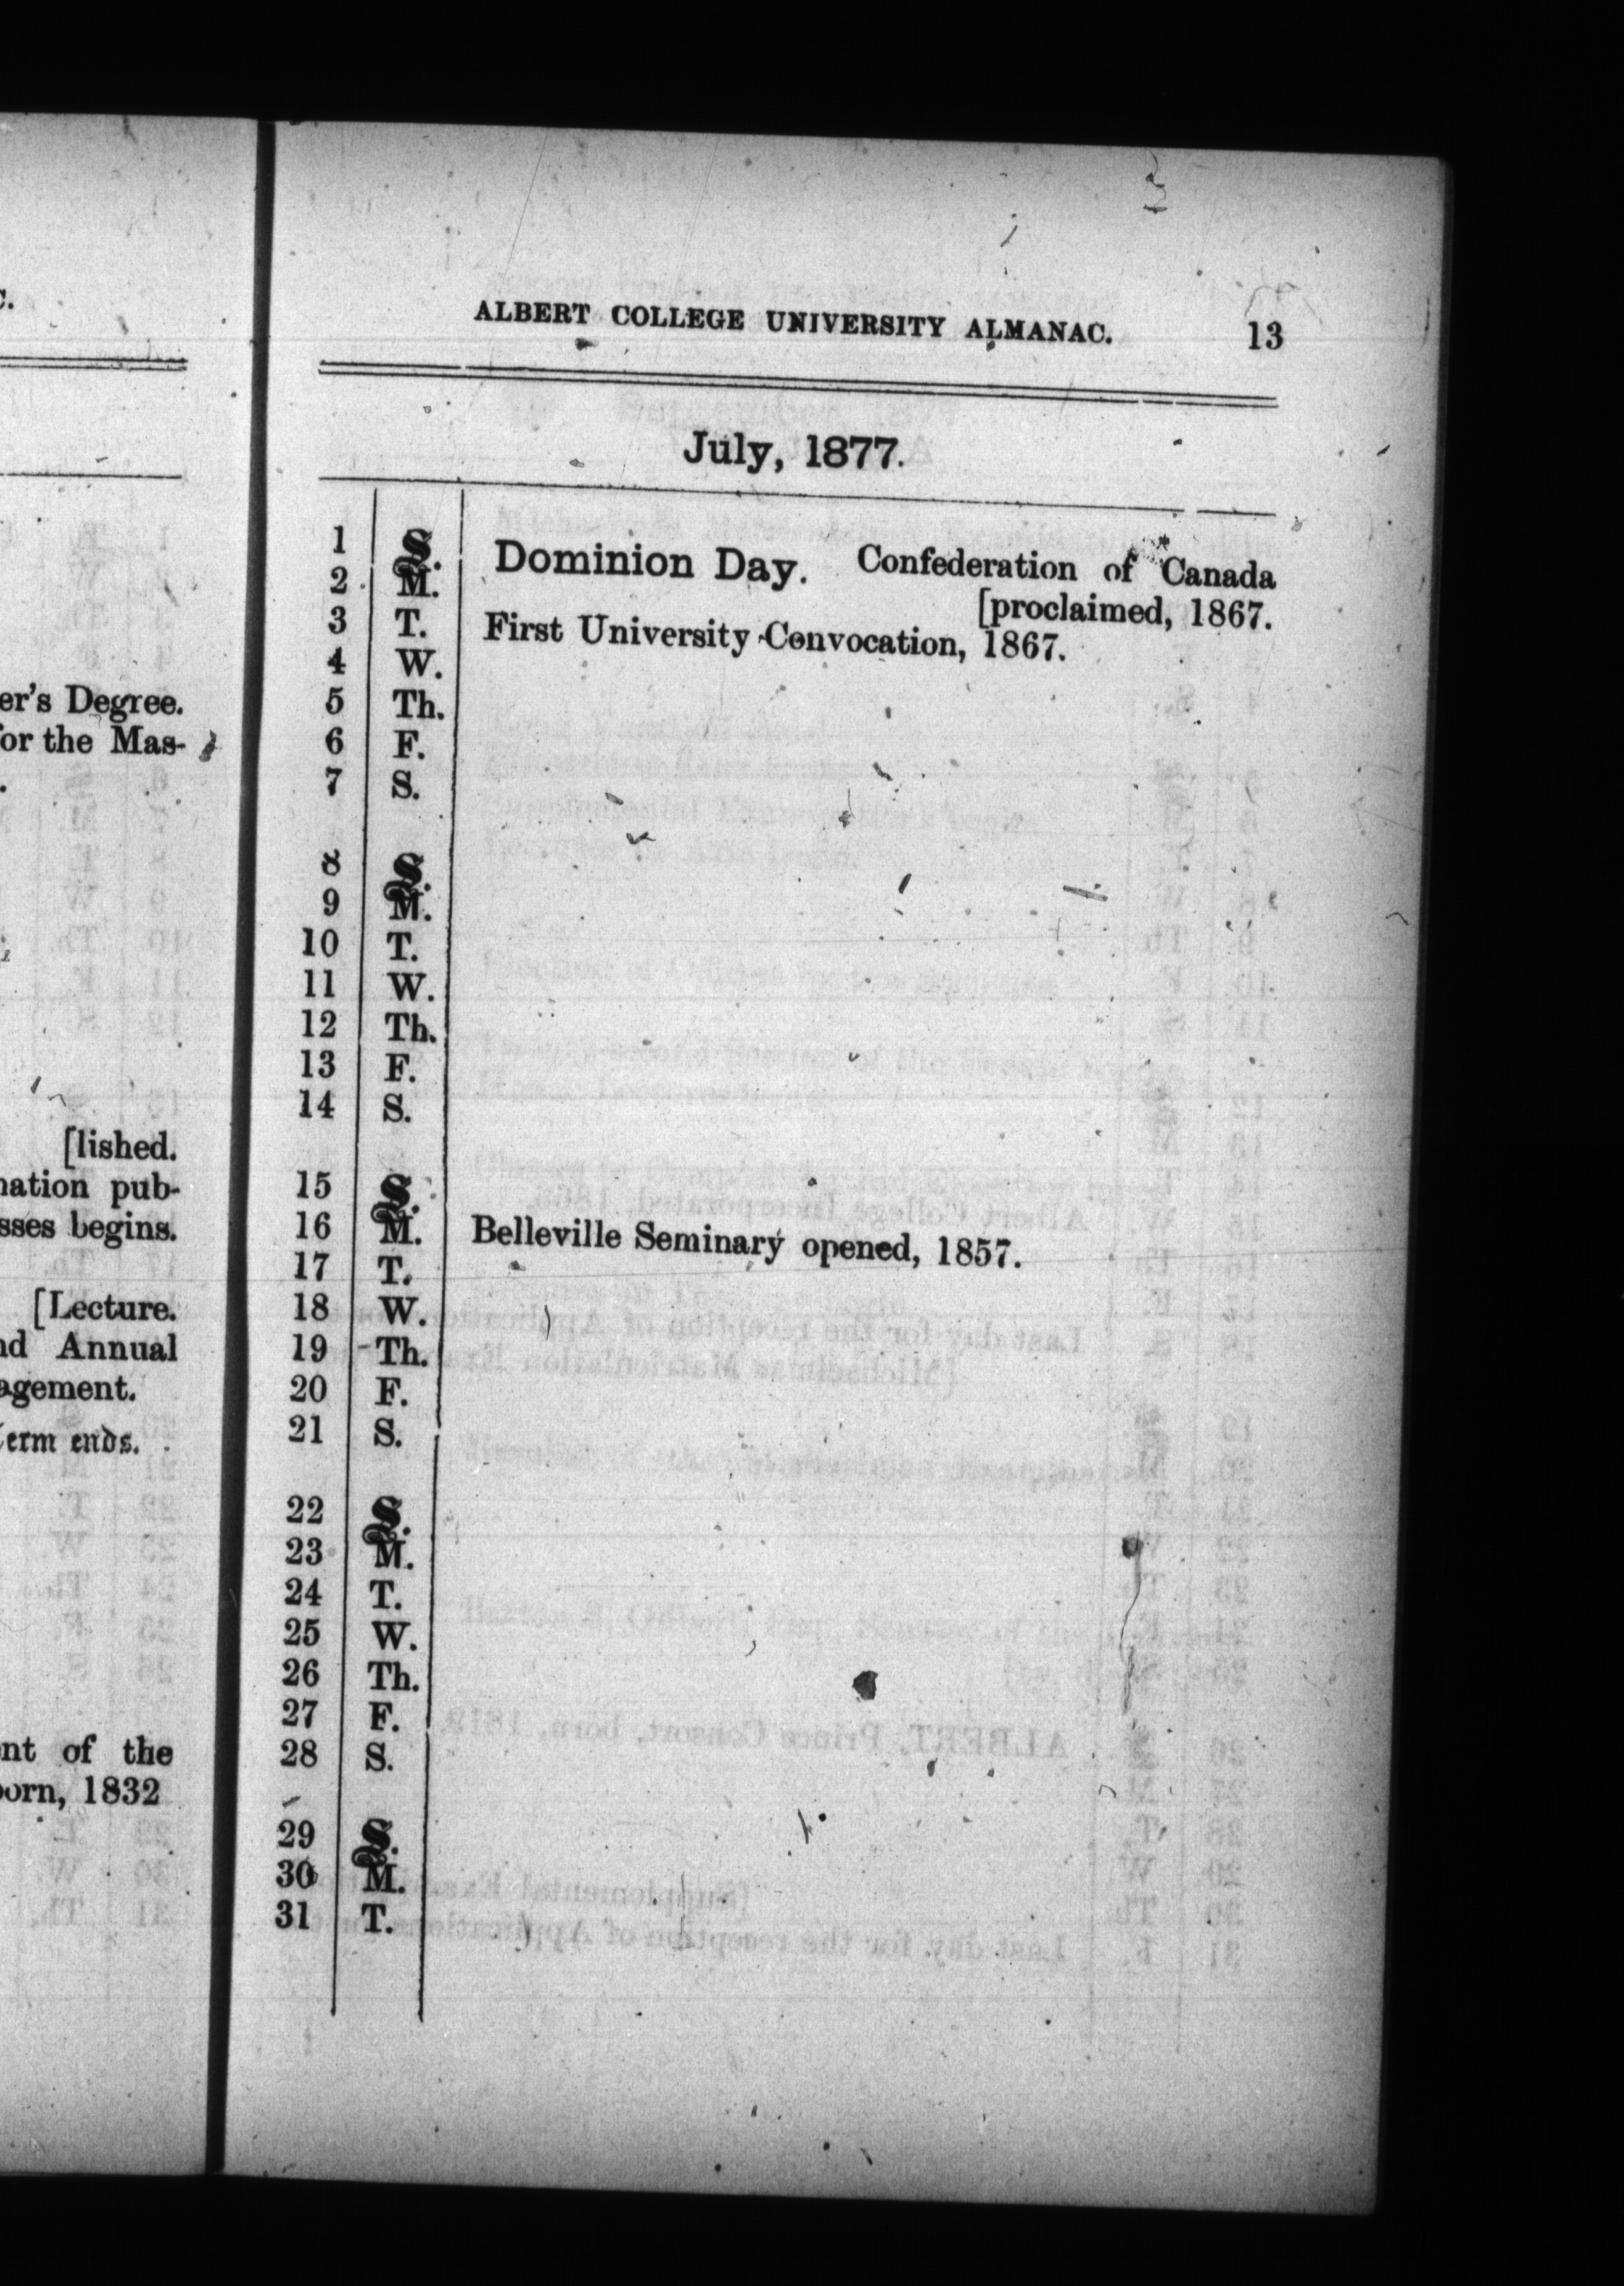 C.
er's Degree.
for the Mas-
[lished.
nation pub-
sses begins.
[Lecture.
nd Annual
agement.
Term ends.
nt of the
born, 1832
ALBERT COLLEGE UNIVERSITY ALMANAC. 13
July, 1877.
1 S. Dominion Day. Confederation of Canada
2 M. [proclaimed, 1867.
3 T. First University Convocation, 1867.
4 W.
5 Th.
6 F.
7 S.
8 S.
9 M.
10 T.
11 W.
12 Th.
13 F.
14 S.
15 S.
16 M. Belleville Seminary opened, 1857.
17 T.
18 W.
19 Th.
20 F.
21 S.
22 S.
23 M.
24 T.
25 W.
26 Th.
27 F.
28 S.
29 S.
30 M.
31 T.